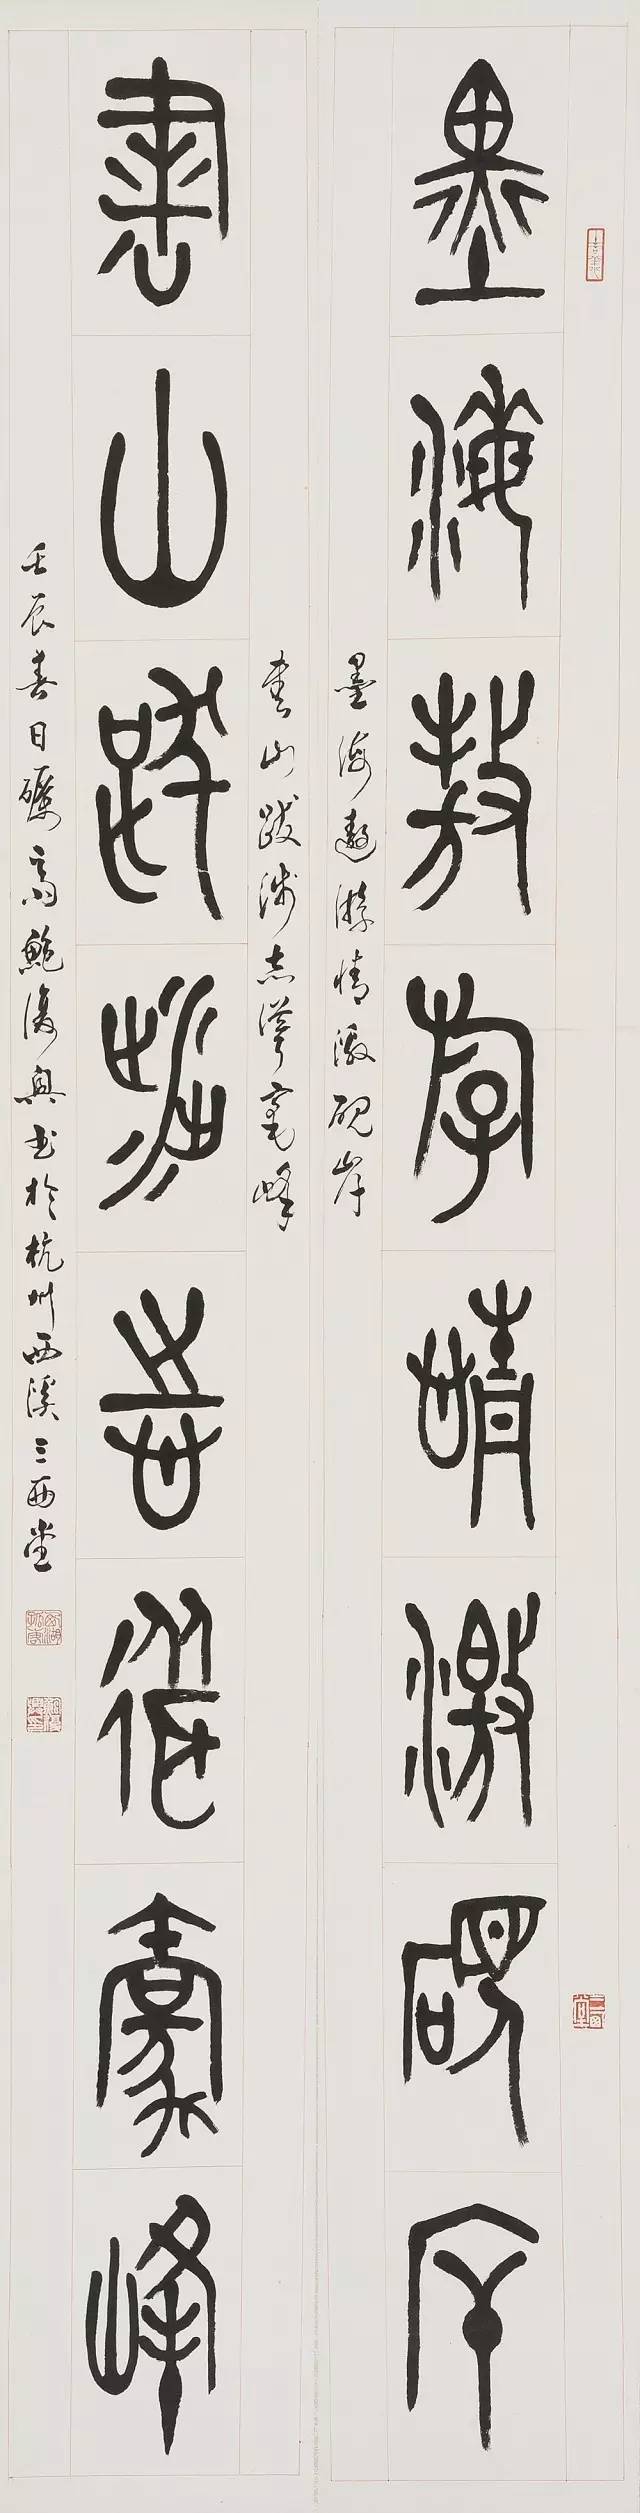 墨海敖游情激砚岸
墨海遨游情激砚岸
书山跋涉志从毫峰
书山跋涉志从毫峰
壬辰春日砺斋鲍复兴书于杭州西溪三西堂